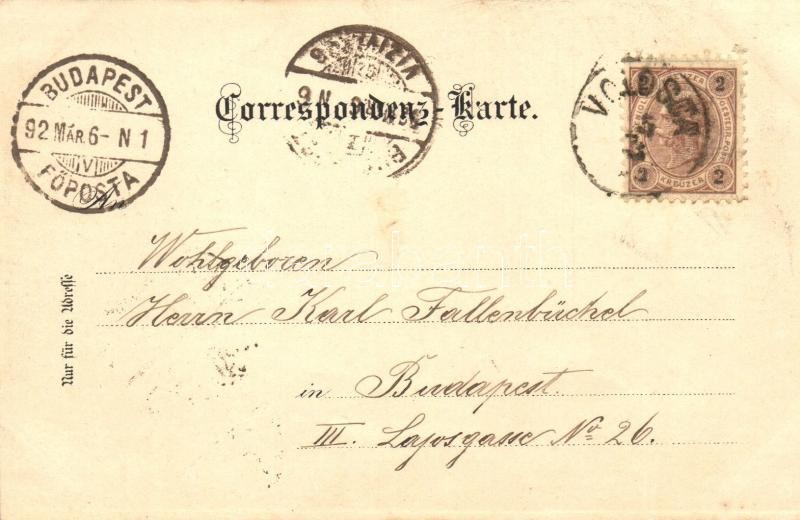 BUDAPEST
92 MÁR. 6 - N 1
IV
FŐPOSTA
Correspondenz-Karte.
2 2
2 2
KREUZER
An
Wohlgeboren
Herrn Karl Fallenbüchel
in Budapest.
III. Lajosgasse No 26.
Nur für die Adresse